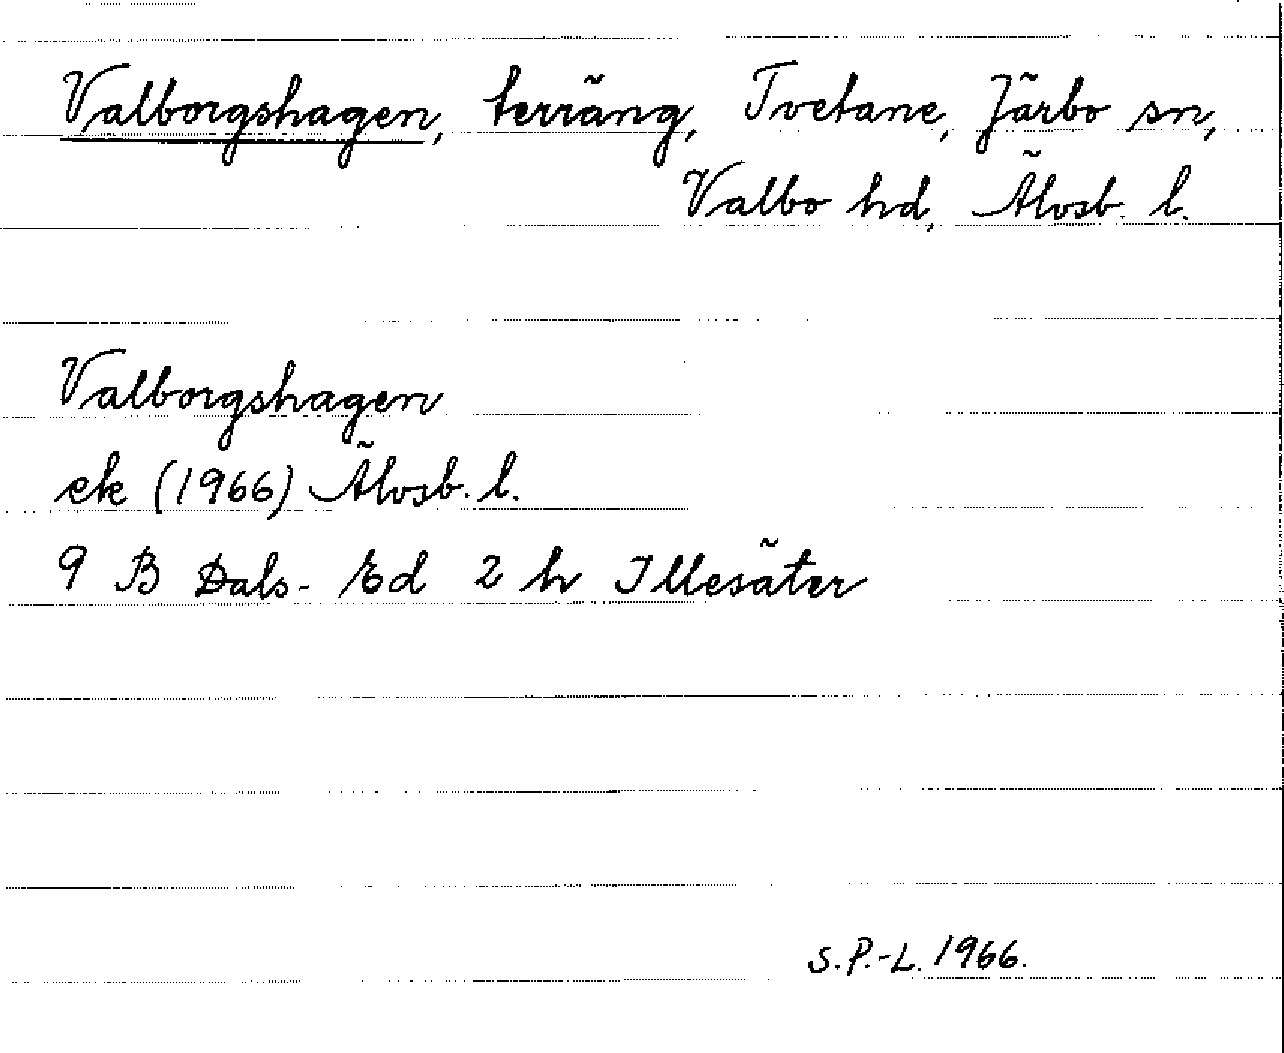 Valborgshagen, terräng, Tvetane, Järbo sn,
Valbo hd, Älvsb. l.
Valborgshagen
ek (1966) Älvsb. l.
9 B Dals-Ed 2 h Illesäter
S.P.-L. 1966.